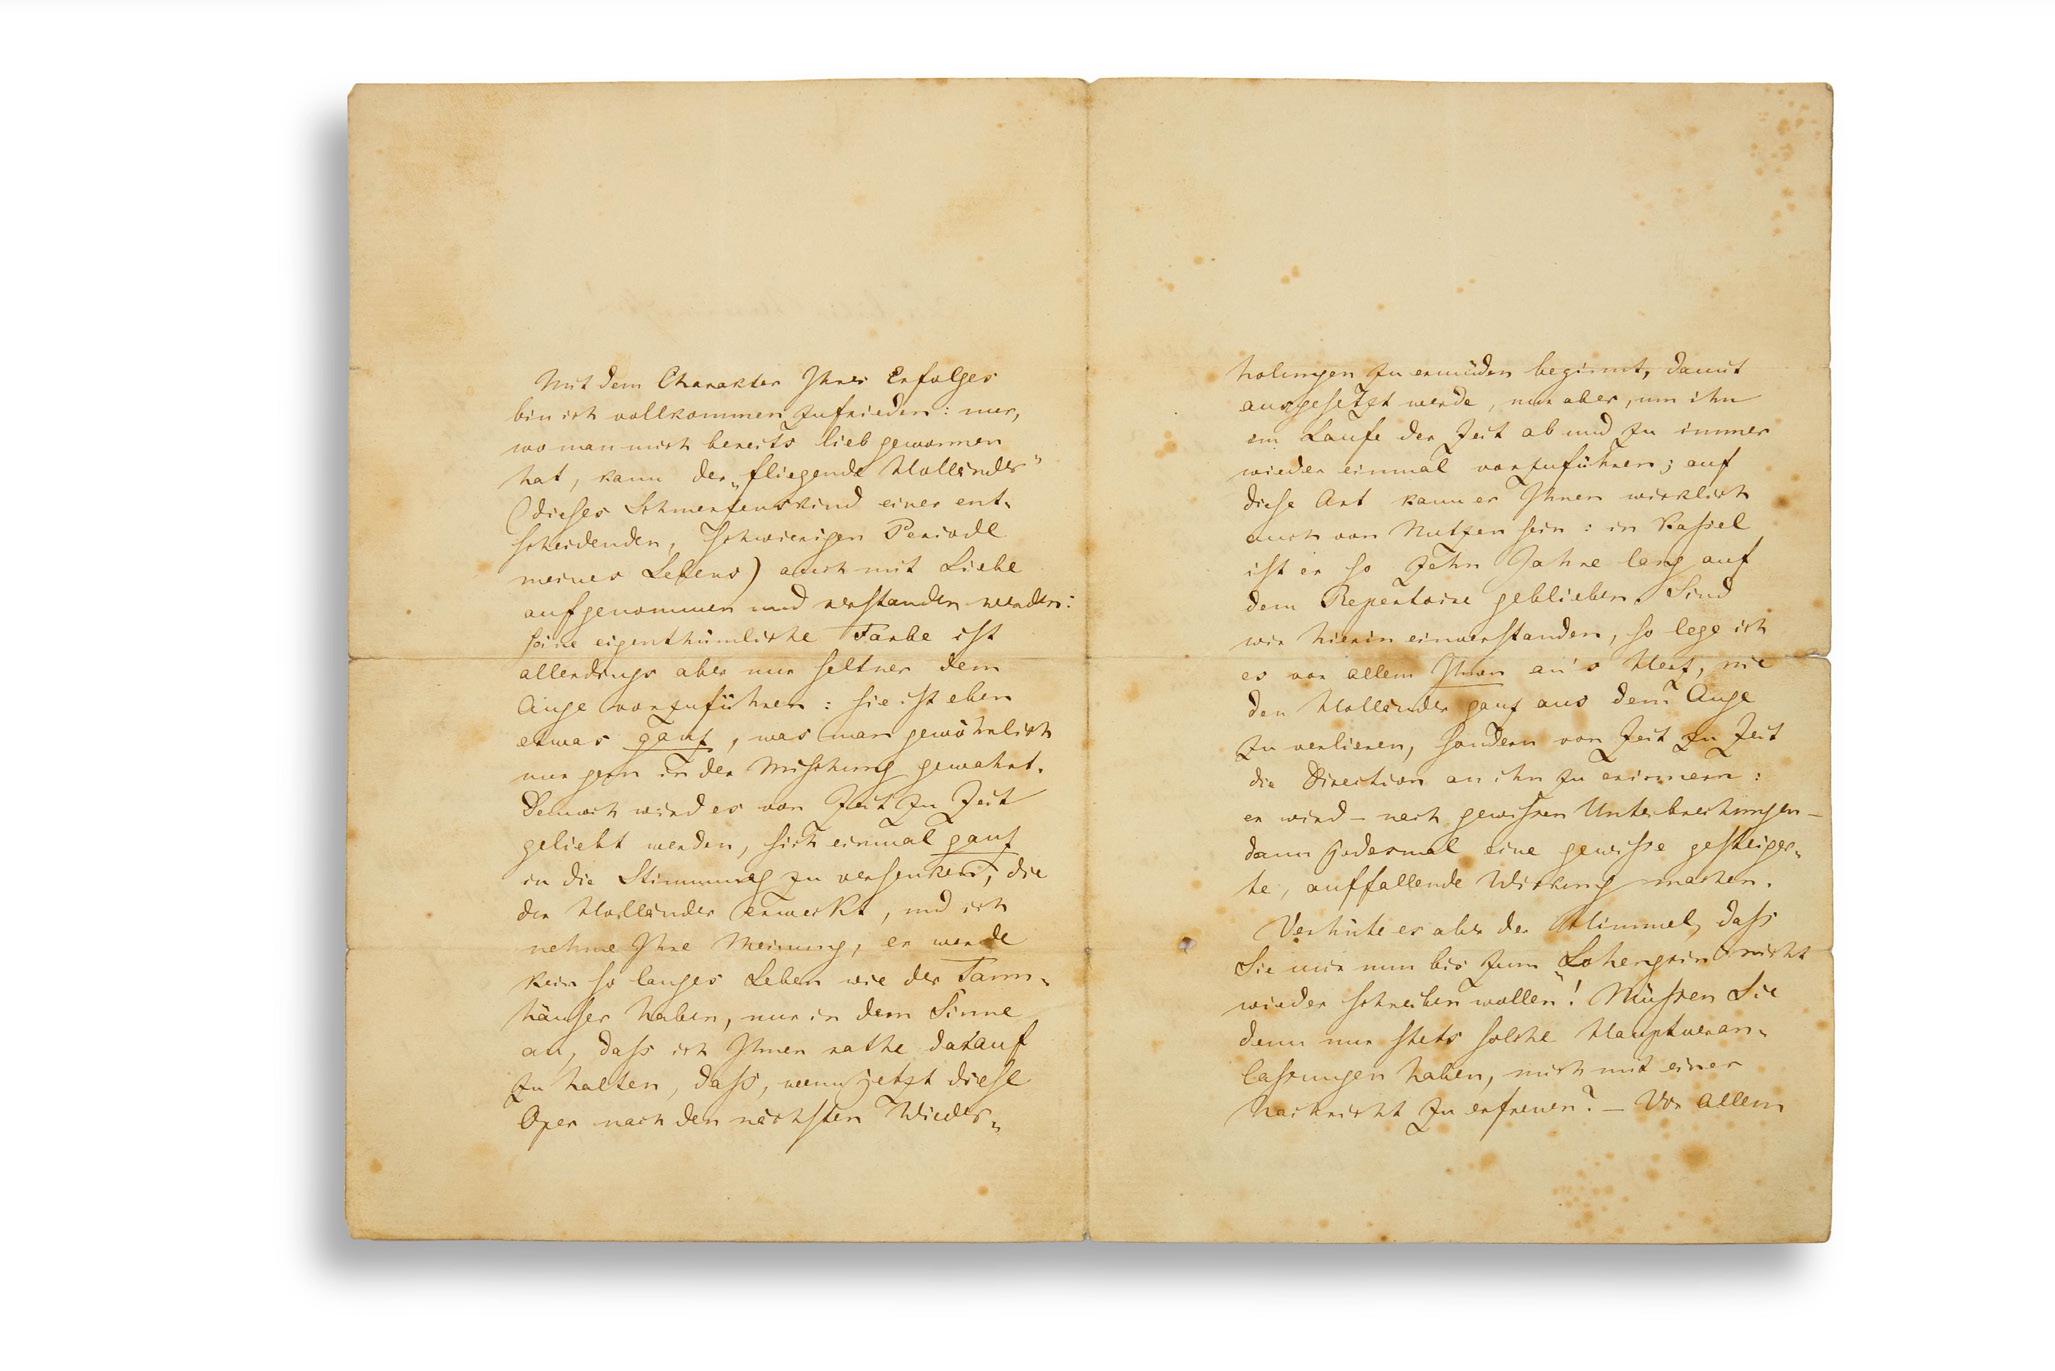 Mit dem Charakter Ihres Erfolges
bin ich vollkommen zufrieden: nur,
wo man mich bereits lieb gewonnen
hat, kann der „fliegende Holländer"
(dieses Schmerzenskind einer ent-
scheidenden, schwierigen Periode
meines Lebens) auch mit Liebe
aufgenommen und verstanden werden:
seine eigenthümliche Farbe ist
allerdings aber nur seltner dem
Auge vorzuführen: sie ist eben
etwas ganz, was man gewöhnlich
nur gern in der Mischung gewahrt.
Dennoch wird es von Zeit zu Zeit
geliebt werden, sich einmal ganz
in die Stimmung zu versenken, die
der Holländer erweckt, und ich
nehme Ihre Meinung, er werde
kein so langes Leben wie der Tann-
häuser haben, nur in dem Sinne
an, dass ich Ihnen rathe darauf
zu halten, dass, wenn jetzt diese
Oper nach den nächsten Wieder-
holungen zu ermüden beginnt, damit
ausgesetzt werde, nur aber, um ihn
im Laufe der Zeit ab und zu immer
wieder einmal vorzuführen; auf
diese Art kann er Ihnen wirklich
auch von Nutzen sein: in Kassel
ist er so zehn Jahre lang auf
dem Repertoire geblieben. Sind
wir hierin einverstanden, so lege ich
es vor allem Ihnen an's Herz, nie
den Holländer ganz aus dem Auge
zu verlieren, sondern von Zeit zu Zeit
die Direction an ihn zu erinnern:
er wird – nach gewissen Unterbrechungen –
dann jedesmal eine gewisse gesteiger-
te, auffallende Wirkung machen.
Verhüte es aber der Himmel, dass
Sie mir nun bis zum „Lohengrin" nicht
wieder schreiben wollen! Müssen Sie
denn nur stets solche Hauptveran-
lassungen haben, mich mit einer
Nachricht zu erfreuen? – Vor allem